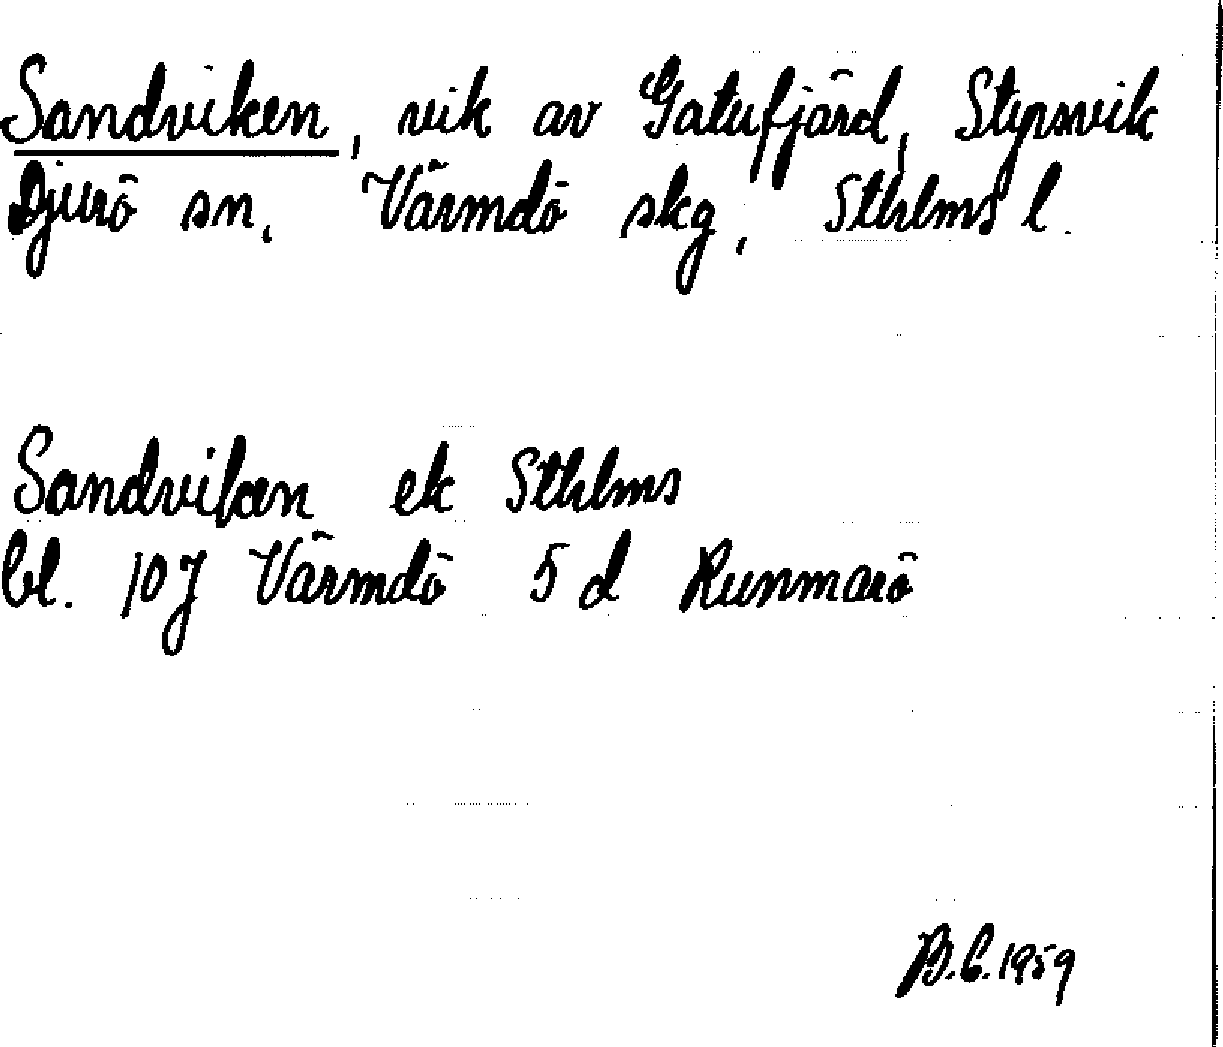 Sandviken, vik av Gatufjärd, Styrsvik
Djurö sn, Värmdö skg, Sthlms l.
Sandviken ek Sthlms
bl. 10J Värmdö 5d Runmarö
B.C. 1959